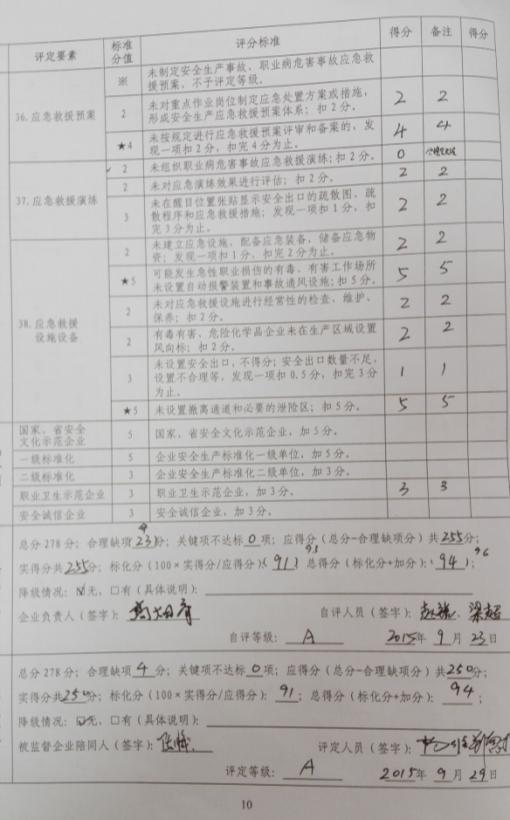 评定要素 标准分值 评分标准 得分 备注 得分
※ 未制定安全生产事故、职业病危害事故应急救
援预案，不予评定等级。
36. 应急救援预案 2 未对重点作业岗位制定应急处置方案或措施，
形成安全生产应急救援预案体系；扣2分。 2 2
★4 未按规定进行应急救援预案评审和备案的，发
现一项扣2分，扣完4分为止。 4 4
2 未组织职业病危害事故应急救援演练；扣2分。 0
37. 应急救援演练 2 未对应急演练效果进行评估；扣2分。 2 2
3 未在醒目位置张贴显示安全出口的疏散图、疏
散程序和应急救援措施；发现一项扣1分，扣
完3分为止。 2 2
2 未建立应急设施，配备应急装备，储备应急物
资；发现一项扣1分，扣完2分为止。 2 2
★5 可能发生急性职业损伤的有毒、有害工作场所
未设置自动报警装置和事故通风设施；扣5分。 5 5
38. 应急救援
设施设备
2 未对应急救援设施进行经常性的检查、维护、
保养；扣2分。 2 2
2 有毒有害、危险化学品企业未在生产区域设置
风向标；扣2分。 2 2
3 未设置安全出口，不得分；安全出口数量不足，
设置不合理等，发现一项扣0.5分，扣完3分
为止。 1 1
★5 未设置撤离通道和必要的泄险区；扣5分。 5 5
国家、省安全
文化示范企业 5 国家、省安全文化示范企业，加5分。
一级标准化 5 企业安全生产标准化一级单位，加5分。
二级标准化 3 企业安全生产标准化二级单位，加3分。
职业卫生示范企业 3 职业卫生示范企业，加3分。 3 3
安全诚信企业 3 安全诚信企业，加3分。
总分278分；合理缺项23分；关键项不达标0项；应得分（总分-合理缺项分）共255分；
实得分共255分；标化分（100×实得分/应得分）（91）；总得分（标化分+加分）：（94）；
降级情况：☑无，□有（具体说明）：
企业负责人（签字）： 自评人员（签字）：
自评等级： A 2015年9月23日
总分278分；合理缺项4分；关键项不达标0项；应得分（总分-合理缺项分）共250分；
实得分共250分；标化分（100×实得分/应得分）：91；总得分（标化分+加分）：94；
降级情况：☑无，□有（具体说明）：
被监督企业陪同人（签字）： 评定人员（签字）：
评定等级： A 2015年9月29日
10